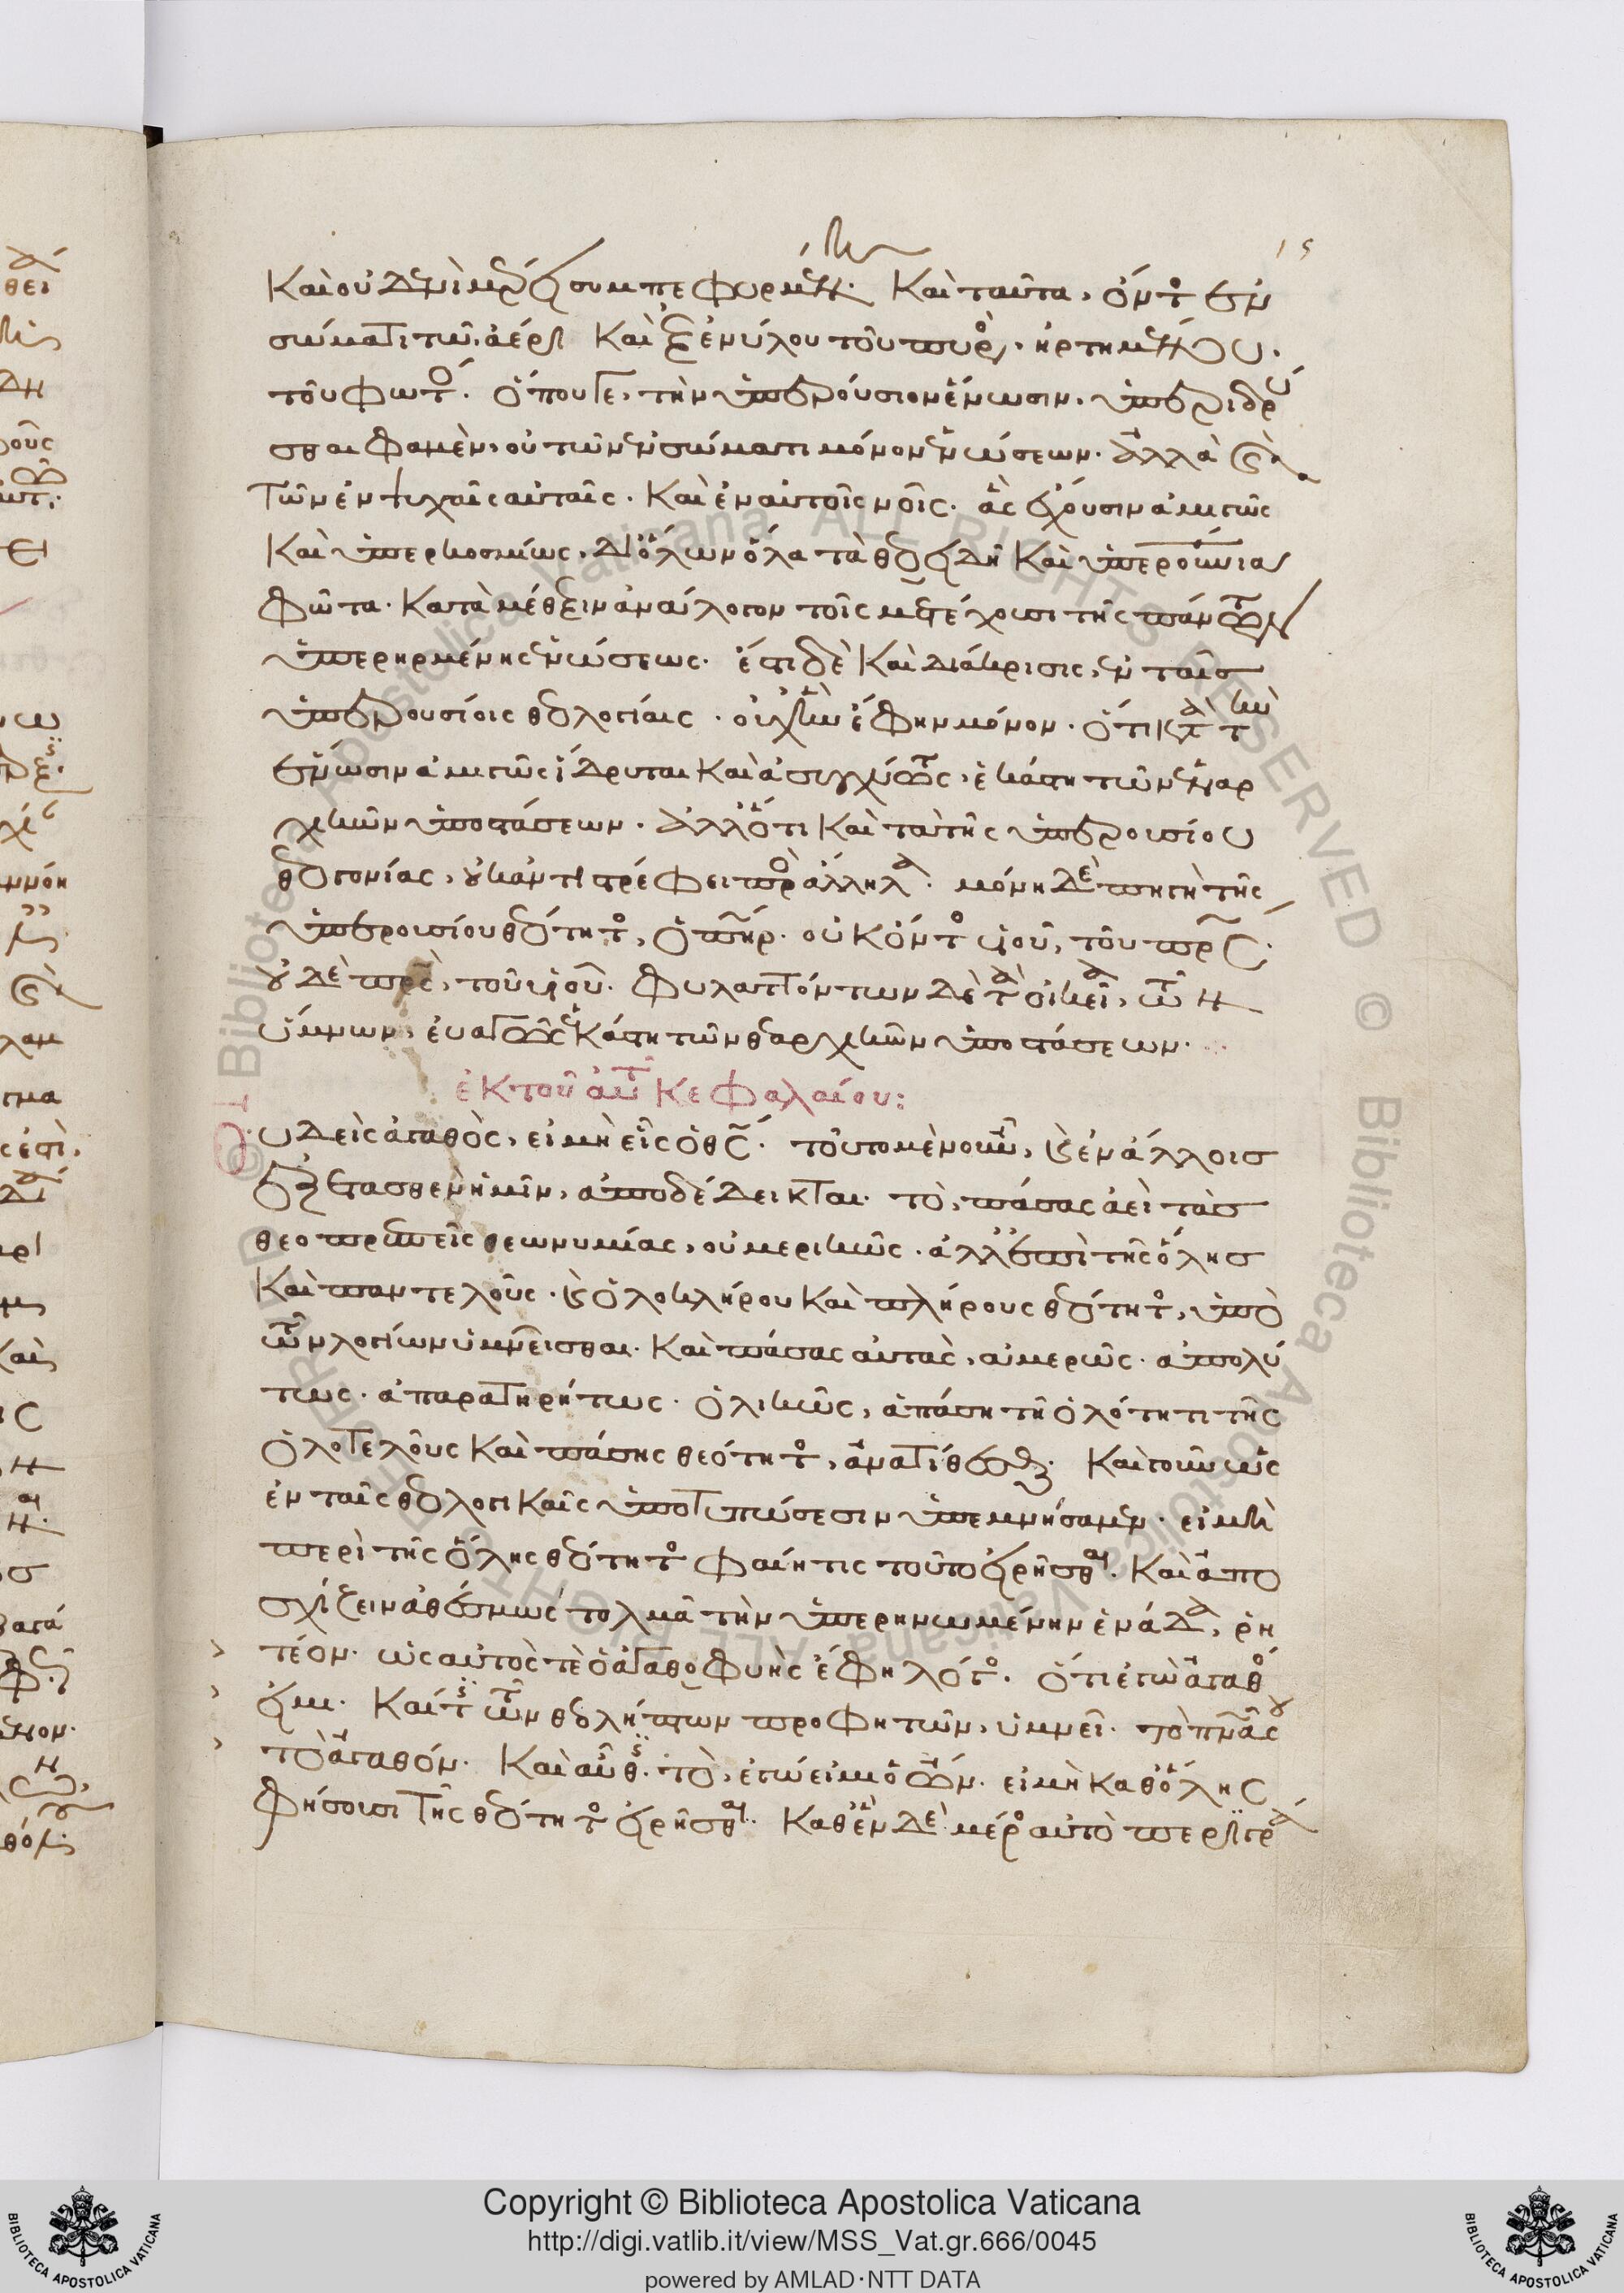 ις
Καὶ οὐδενὶ μέρει συμπεφυρμένην. Καὶ ταῦτα, ὄντος ἐν
σώματι τῶ ἀέρι καὶ ἐξ ἐνύλου τοῦ πυρὸς, ἠρτημένου
τοῦ φωτός. ὅπουγε, τὴν ὑπερούσιον ἕνωσιν, ὑπεριδρύ
σθαι φαμὲν, οὐ τῶν ἐν σώματι μόνον ἑνώσεων. ἀλλὰ καὶ
τῶν ἐν ψυχαῖς αὐταῖς. Καὶ ἐν αὐτοῖς νοῖς. ἃς ἔχουσιν ἀμιγῶς
Καὶ ὑπερκοσμίως, δι' ὅλων ὅλα τὰ θεοειδῆ Καὶ ὑπερουράνια
φῶτα. Κατὰ μέθεξιν ἀνάλογον τοῖς μετέχουσι τῆς πάντων
ὑπερηρμένης ἑνώσεως. ἔστι δὲ Καὶ διάκρισις, ἐν ταῖς
ὑπερουσίοις θεολογίαις. οὐχ ἣν ἔφην μόνον. ὅτι κατὰ τὴν
ἕνωσιν ἀμιγῶς ἵδρυται Καὶ ἀσυγχύτως, ἑκάστη τῶν ἑναρ
χικῶν ὑποστάσεων. ἀλλ' ὅτι Καὶ τὰ τῆς ὑπερουσίου
θεογονίας, οὐκ ἀντιστρέφει πρὸς ἄλληλα. μόνη δὲ πηγὴ τῆς
ὑπερουσίου θεότητος, ὁ πατήρ. οὐκ ὄντος υἱοῦ, τοῦ πατρός.
οὐδὲ πατρὸς, τοῦ υἱοῦ. φυλαττόντων δὲ τὰ οἰκεῖα, τῶν
ὕμνων, εὐαγῶς ἑκάστη τῶν θεαρχικῶν ὑποστάσεων.
ἐκ τοῦ αὐτοῦ Κεφαλαίου:
Οὐδεὶς ἀγαθὸς, εἰ μὴ εἷς ὁ θεός. τοῦτο μὲν οὖν, καὶ ἐν ἄλλοις
ἐξετασθὲν ἡμῖν, ἀποδέδεικται. τὸ, πάσας ἀεὶ τὰς
θεοπρεπεῖς θεωνυμίας, οὐ μερικῶς. ἀλλ' ἐπὶ τῆς ὅλης
Καὶ παντελοῦς. καὶ ὁλοκλήρου Καὶ πλήρους θεότητος, ὑπὸ
τῶν λογίων ὑμνεῖσθαι. Καὶ πάσας αὐτὰς, ἀμερῶς. ἀπολύ
τως. ἀπαρατηρήτως. ὁλικῶς, ἁπάση τῆ ὁλότητι τῆς
ὁλοτελοῦς Καὶ πάσης θεότητος, ἀνατίθεσθαι. Καὶ γοῦν ὡς
ἐν ταῖς θεολογικαῖς ὑποτυπώσεσιν ὑπεμνήσαμεν. εἰ μὴ
περὶ τῆς ὅλης θεότητος φαίη τις τοῦτο εἰρῆσθαι. Καὶ ἀπο
σχίζειν ἀθέσμως τολμᾶ τὴν ὑπερηνωμένην ἑνάδα, ῥη
τέον. ὡς αὐτός τε ὁ ἀγαθοφυὴς ἔφη λόγος. ὅτι ἐγὼ ἀγαθός
εἰμι. Καί τις τῶν θεολήπτων προφητῶν, ὑμνεῖ. τὸ πνεῦμα
τὸ ἀγαθόν. Καὶ αὖθις. τὸ, ἐγώ εἰμι ὁ ὤν. εἰ μὴ καθ' ὅλης
φήσουσι τῆς θεότητος εἰρῆσθαι. Καθ' ἓν δὲ μέρος αὐτὸ περιγρά